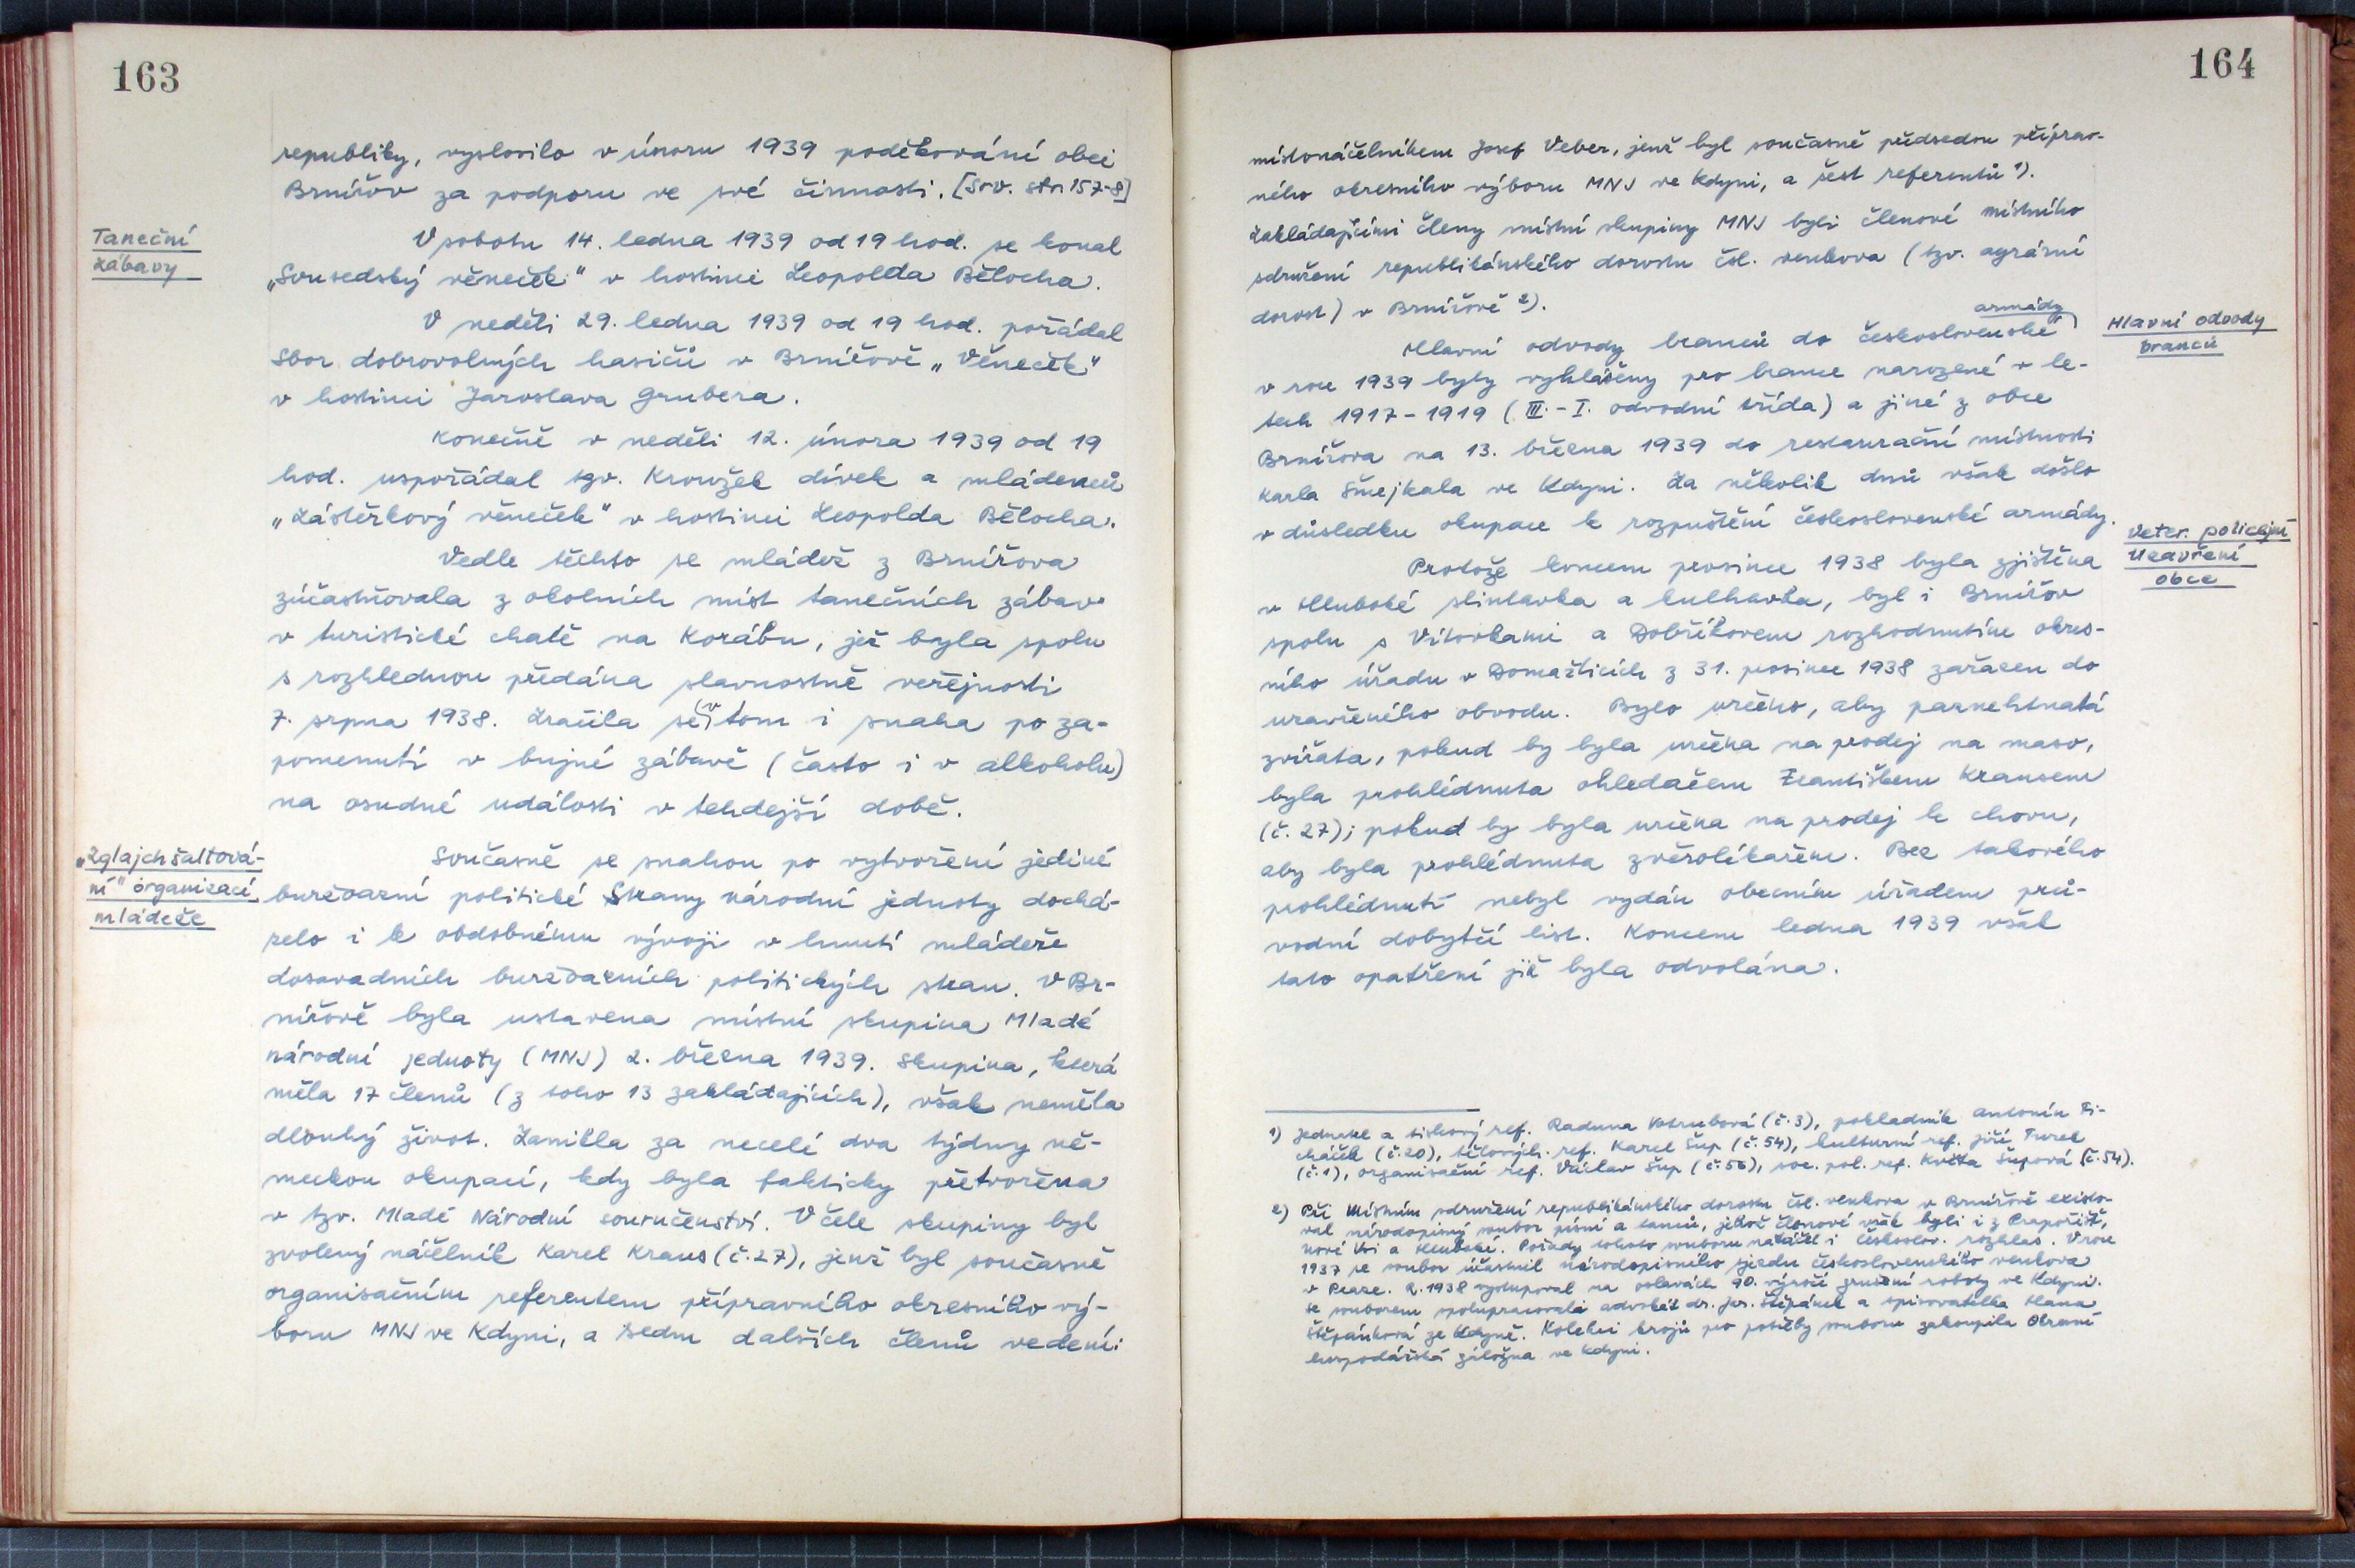 163
republiky, vyslovilo v únoru 1939 poděkování obci
Brnířov za podporu ve své činnosti. [Srv. str. 157-8]
Taneční
zábavy
V sobotu 14. ledna 1939 od 19 hod. se konal
„Sousedský věneček" v hostinci Leopolda Bělocha.
V neděli 29. ledna 1939 od 19 hod. pořádal
Sbor dobrovolných hasičů v Brnířově „Věneček"
v hostinci Jaroslava Grubera.
Konečně v neděli 12. února 1939 od 19
hod. uspořádal tzv. Kroužek dívek a mládenců
„Zástěrkový věneček" v hostinci Leopolda Bělocha.
Vedle těchto se mládež z Brnířova
zúčastňovala z okolních míst tanečních zábav
v turistické chatě na Korábu, jež byla spolu
s rozhlednou předána slavnostně veřejnosti
7. srpna 1938. Zračila se v tom i snaha po za-
pomenutí v bujné zábavě (často i v alkoholu)
na osudné události v tehdejší době.
„Zglajchšaltová-
ní" organizací
mládeže
Současně se snahou po vytvoření jediné
buržoazní politické Strany národní jednoty dochá-
zelo i k obdobnému vývoji v hnutí mládeže
dosavadních buržoazních politických stran. V Br-
nířově byla ustavena místní skupina Mladé
národní jednoty (MNJ) 2. března 1939. Skupina, která
měla 17 členů (z toho 13 zakládajících), však neměla
dlouhý život. Zanikla za necelé dva týdny ně-
meckou okupací, kdy byla fakticky přetvořena
v tzv. Mladé Národní souručenství. V čele skupiny byl
zvolený náčelník Karel Kraus (č. 27), jenž byl současně
organisačním referentem přípravného okresního vý-
boru MNJ ve Kdyni, a sedm dalších členů vedení:
164
místonáčelníkem Josef Veber, jenž byl současně předsedou příprav-
ného okresního výboru MNJ ve Kdyni, a šest referentů 1).
Zakládajícími členy místní skupiny MNJ byli členové místního
sdružení republikánského dorostu čsl. venkova (tzv. agrární
dorost) v Brnířově 2).
Hlavní odvody
branců
Hlavní odvody branců do československé armády
v roce 1939 byly vyhlášeny pro brance narozené v le-
tech 1917-1919 (III.-I. odvodní třída) a jiné z obce
Brnířova na 13. března 1939 do restaurační místnosti
Karla Smejkala ve Kdyni. Za několik dnů však došlo
v důsledku okupace k rozpuštění československé armády.
Veter. policejní
uzavření
obce
Protože koncem prosince 1938 byla zjištěna
v Hluboké slintavka a kulhavka, byl i Brnířov
spolu s Vítovkami a Dobříkovem rozhodnutím okres-
ního úřadu v Domažlicích z 31. prosince 1938 zařazen do
uzavřeného obvodu. Bylo určeno, aby paznehtnatá
zvířata, pokud by byla určena na prodej na maso,
byla prohlédnuta ohledačem Františkem Krausem
(č. 27); pokud by byla určena na prodej k chovu,
aby byla prohlédnuta zvěrolékařem. Bez takového
prohlédnutí nebyl vydán obecním úřadem prů-
vodní dobytčí list. Koncem ledna 1939 však
tato opatření již byla odvolána.
1) Jednatel a tiskový ref. Raduna Kotrubová (č. 3), pokladník Antonín Ti-
cháček (č. 20), tělových. ref. Karel Šup (č. 54), kulturní ref. Jiří Turek
(č. 1), organisační ref. Václav Šup (č. 56), soc. pol. ref. Květa Šupová (č. 54).
2) Při Místním sdružení republikánského dorostu čsl. venkova v Brnířově existo-
val národopisný soubor písní a tanců, jehož členové však byli i z Prapořišť,
Nové Vsi a Hluboké. Pořady tohoto souboru natáčel i českoslov. rozhlas. V roce
1937 se soubor účastnil národopisného sjezdu československého venkova
v Praze. R. 1938 vystupoval na oslavách 90. výročí zrušení roboty ve Kdyni.
Se souborem spolupracovali advokát dr. Jar. Štěpánek a spisovatelka Hana
Štěpánková ze Kdyně. Kolekci krojů pro potřeby souboru zakoupila Okresní
hospodářská záložna ve Kdyni.